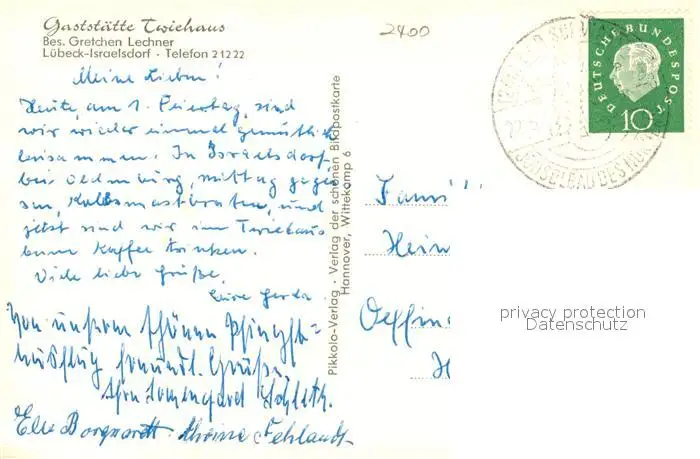 Gaststätte Twiehaus
Bes. Gretchen Lechner
Lübeck-Israelsdorf · Telefon 2 12 22
2400
DEUTSCHE BUNDESPOST
10
Meine Lieben!
Heute, am 1. Feiertag, sind
wir wieder einmal gemütlich
beisammen. In Israelsdorf
bei Oldenburg, mittag gegessen
Kalbsmastbraten, und
jetzt sind wir im Twiehaus
beim Kaffee trinken.
Viele liebe Grüße
Eure Gerda.
Von unserem schönen Pfingst=
ausflug freundl. Grüße
Else Borgwardt
Fehlandt
Pikkolo-Verlag · Verlag der schönen Bildpostkarte
Hannover, Wittekamp 6
Fami
Hein
Oeffin
H
privacy protection
Datenschutz